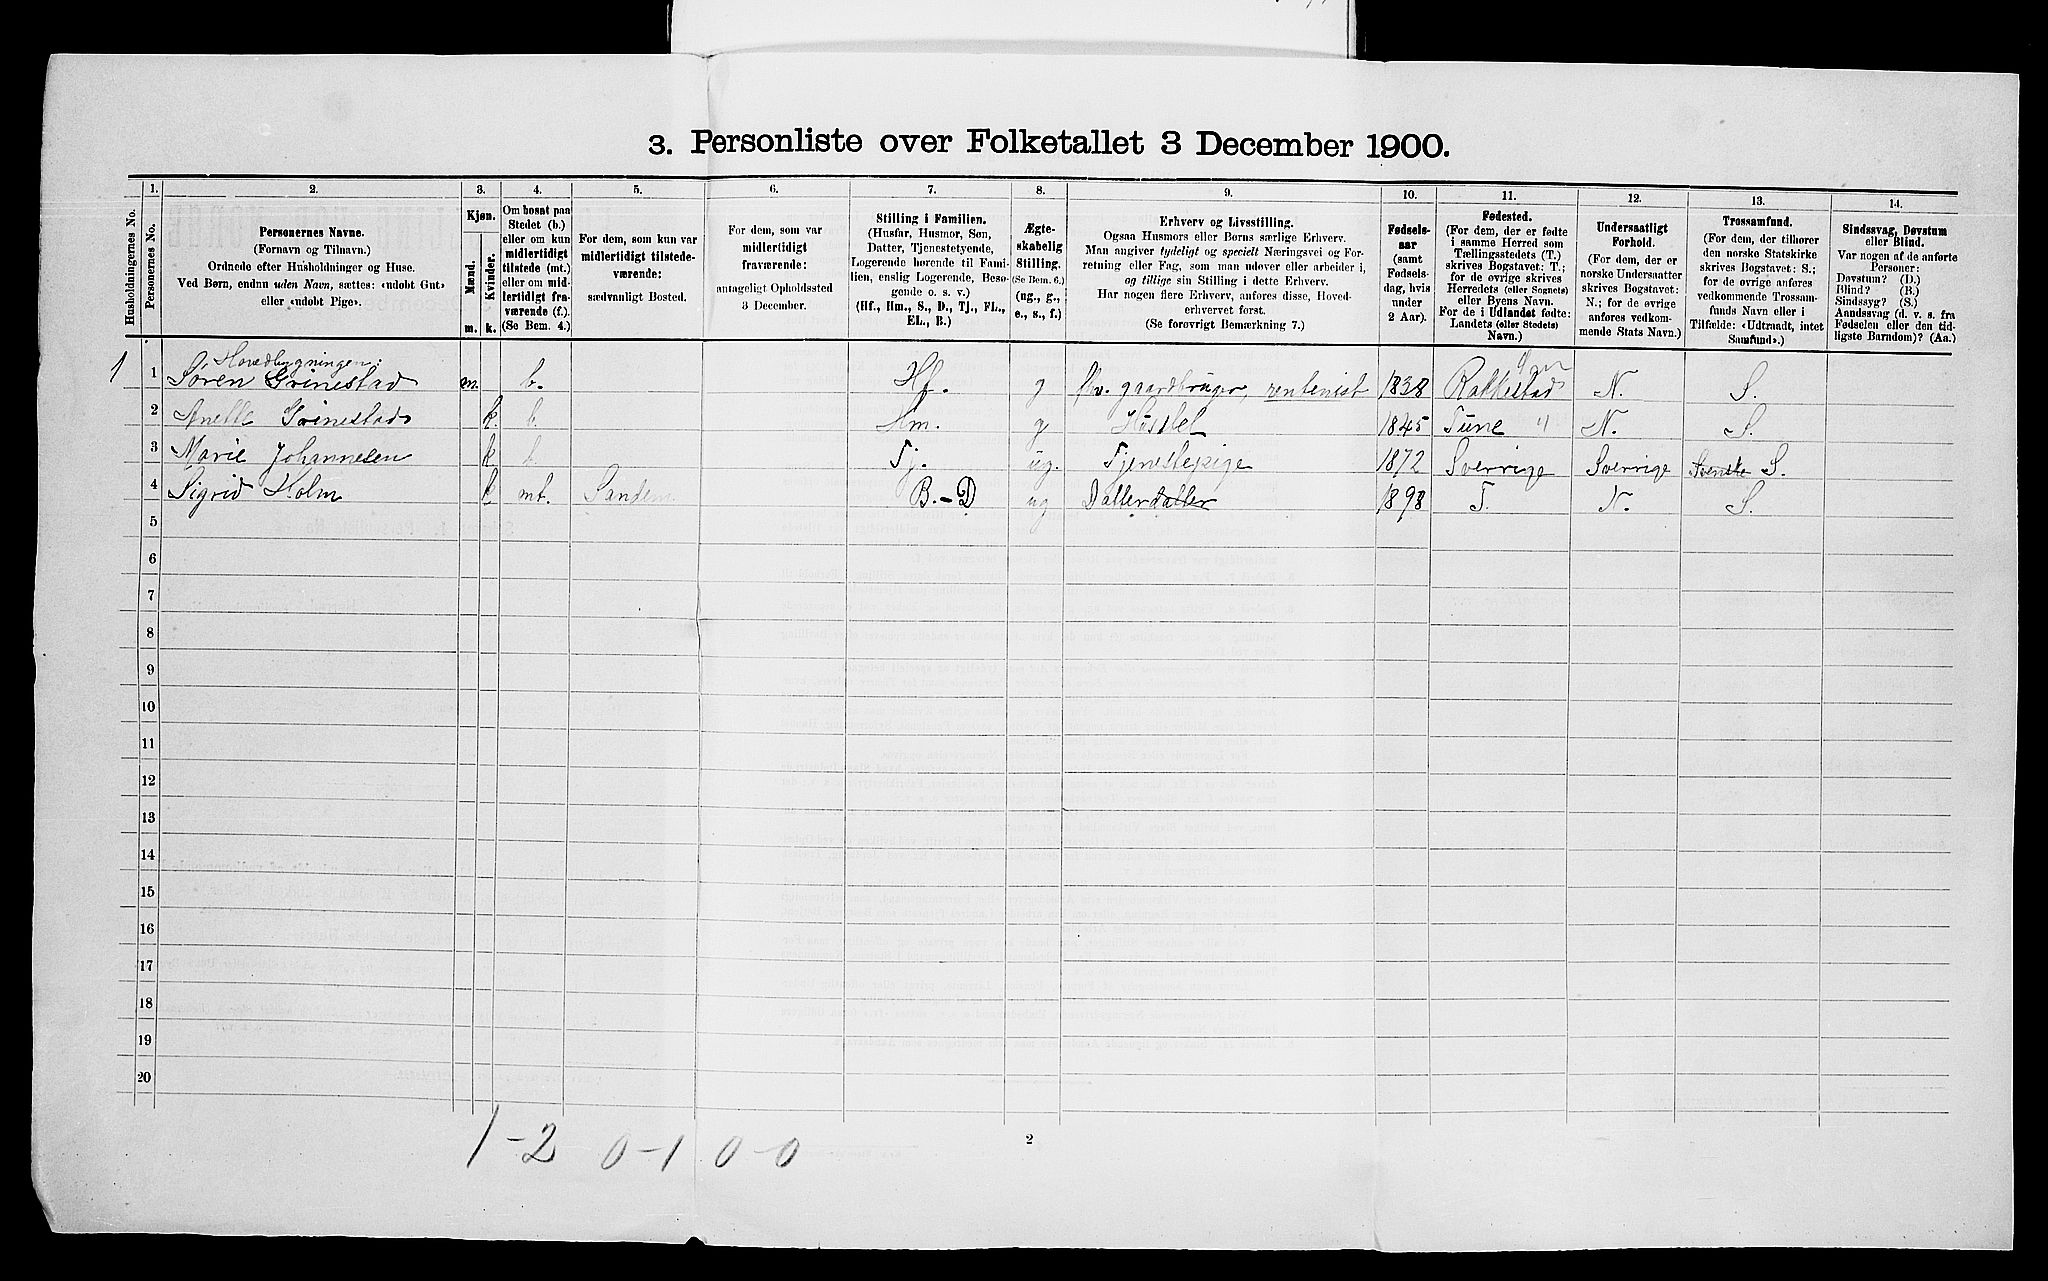 3. Personliste over Folketallet 3 December 1900.
1. 2. 3. 4. 5. 6. 7. 8. 9. 10. 11. 12. 13. 14.
Husholdningernes No.
Personernes No.
Personernes Navne.
(Fornavn og Tilnavn.)
Ordnede efter Husholdninger og Huse.
Ved Børn, endnu uden Navn, sættes: «udøbt Gut»
eller «udøbt Pige».
Kjøn.
Mænd.
Kvinder.
m. k.
Om bosat paa
Stedet (b.)
eller om kun
midlertidigt
tilstede (mt.)
eller om mid-
lertidigt fra-
værende (f.).
(Se Bem. 4.)
For dem, som kun var
midlertidigt tilstede-
værende:
sædvanligt Bosted.
For dem, som var
midlertidigt
fraværende:
antageligt Opholdssted
3 December.
Stilling i Familien.
(Husfar, Husmor, Søn,
Datter, Tjenestetyende,
Logerende hørende til Fami-
lien, enslig Logerende, Besø-
gende o. s. v.)
(Hf., Hm., S., D., Tj., FL.,
EL., B.)
Ægte-
skabelig
Stilling.
(Se Bem. 6.)
(ug., g.,
e., s., f.)
Erhverv og Livsstilling.
Ogsaa Husmors eller Børns særlige Erhverv.
Man angiver tydeligt og specielt Næringsvei og For-
retning eller Fag, som man udøver eller arbeider i,
og tillige sin Stilling i dette Erhverv.
Har nogen flere Erhverv, anføres disse, Hoved-
erhvervet først.
(Se forøvrigt Bemærkning 7.)
Fødsels-
aar
(samt
Fødsels-
dag, hvis
under
2 Aar).
Fødested.
(For dem, der er fødte
i samme Herred som
Tællingsstedets (T.)
skrives Bogstavet: T.;
for de øvrige skrives
Herredets (eller Sognets)
eller Byens Navn.
For de i Udlandet fødte:
Landets (eller Stedets)
Navn.)
Undersaatligt
Forhold.
(For dem, der er
norske Undersaatter
skrives Bogstavet:
N.; for de øvrige
anføres vedkom-
mende Stats Navn.)
Trossamfund.
(For dem, der tilhører
den norske Statskirke
skrives Bogstavet: S.;
for de øvrige anføres
vedkommende Trossam-
funds Navn eller i
Tilfælde: «Udtraadt, intet
Samfund».)
Sindssvag, Døvstum
eller Blind.
Var nogen af de anførte
Personer:
Døvstum? (D.)
Blind? (B.)
Sindssyg? (S.)
Aandssvag (d. v. s. fra
Fødselen eller den tid-
ligste Barndom)? (Aa.)
Hovedbygningen:
1 1 Søren Grinestad m. b. Hf. g fhv. gaardbruger, rentenist 1838 Rakkestad N. S.
2 Anette Grinestad k. b. Hm. g 1845 Tune " N. S.
3 Marie Johannesen k b. Tj. ug. Tjenestepige 1872 Sverrige Sverrige Svenske S.
4 Sigrid Holm k mt. Sandem B.-D ug Datterdatter 1898 T. N. S.
5
6
7
8
9
10
11
12
13
14
15
16
17
18
19
20
1-2 0-1 0-0
2